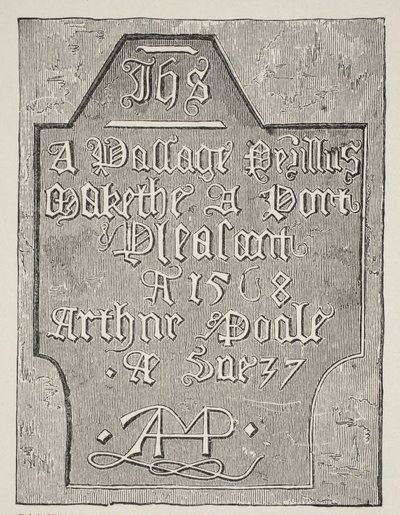 Ihs
A Passage Perillus
Makethe A Port
Pleasant
A 1568
Arthur Poole
Æ Sue 37
AP